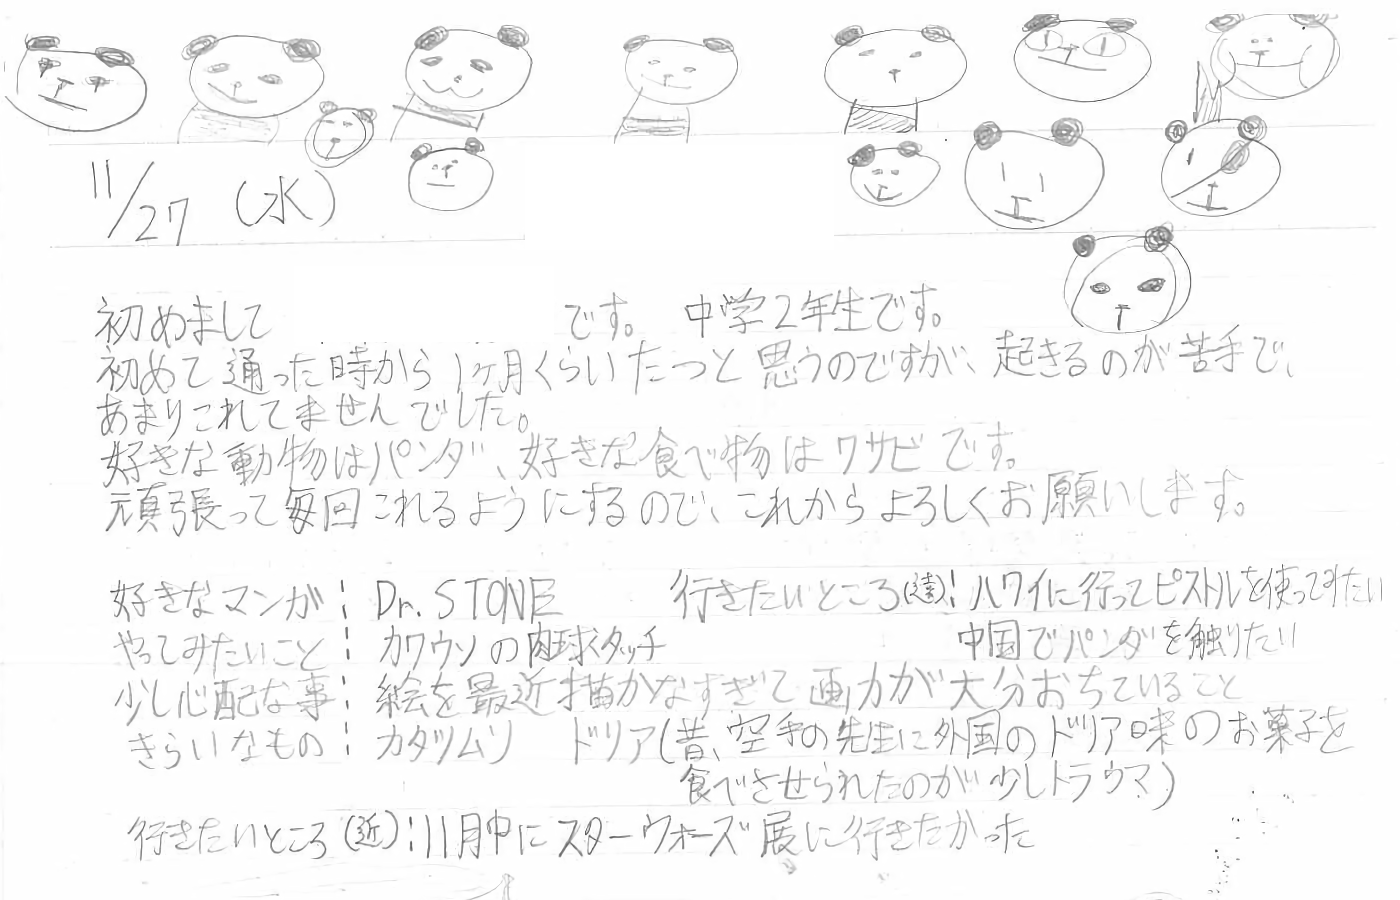 11/27 (水)
初めまして です。 中学2年生です。
初めて通った時から1ヶ月くらいたつと思うのですが、起きるのが苦手で、
あまりこれてませんでした。
好きな動物はパンダ、好きな食べ物はワサビです。
頑張って毎回これるようにするので、これからよろしくお願いします。
好きなマンガ: Dr. STONE 行きたいところ(遠): ハワイに行ってピストルを使ってみたい
やってみたいこと: カワウソの肉球タッチ 中国でパンダを触りたい
少し心配な事: 絵を最近描かなすぎて画力が大分おちていること
きらいなもの: カタツムリ ドリア(昔、空手の先生に外国のドリア味のお菓子を
食べさせられたのが少しトラウマ)
行きたいところ(近): 11月中にスターウォーズ展に行きたかった